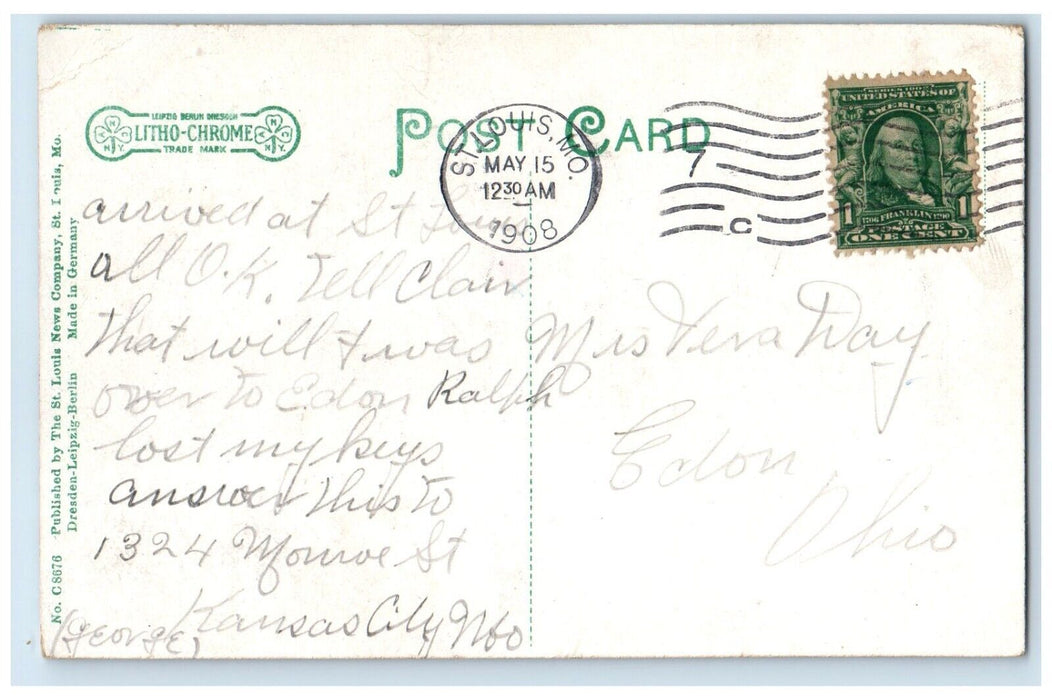 LEIPZIG BERLIN DRESDEN
LITHO-CHROME
TRADE MARK
POST CARD
ST. LOUIS, MO.
MAY 15
12 30 AM
1908
7
C
SERIES 1902
UNITED STATES OF
AMERICA
1 1706 FRANKLIN 1790 1
POSTAGE
ONE CENT
No. C 8676 Published by The St. Louis News Company, St. Louis, Mo.
Dresden-Leipzig-Berlin Made in Germany
arrived at St Louis
all O.K. Tell Clair
that will & was
over to Edon Ralph
lost my keys
answer this to
1324 Monroe St
Kansas City Mo
(George)
Mrs Vera Day
Edon
Ohio